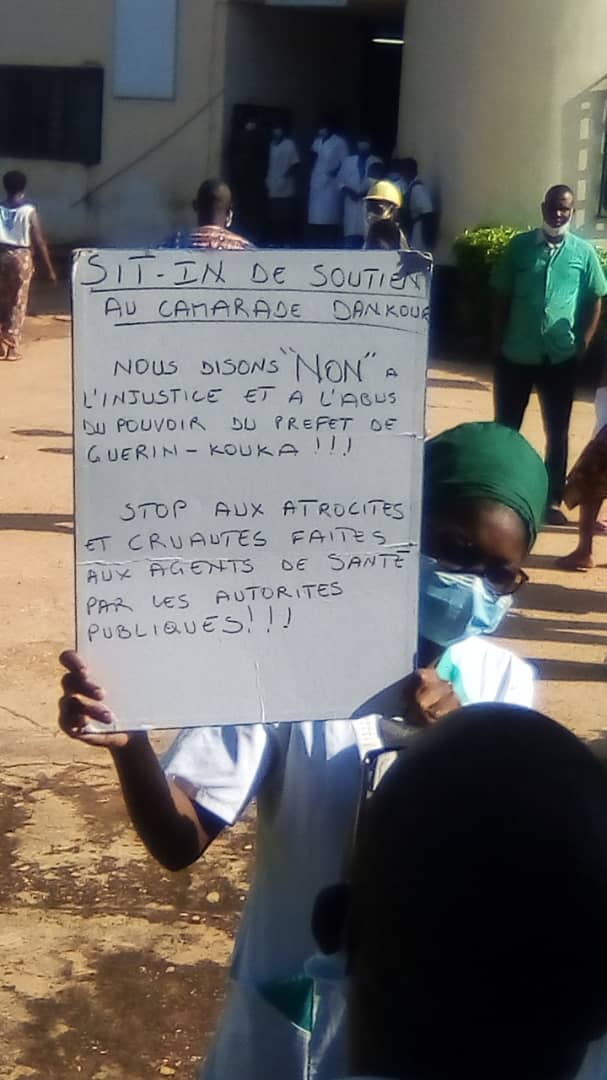 SIT-IN DE SOUTIEN
AU CAMARADE DANKOUR
NOUS DISONS "NON" A
L'INJUSTICE ET A L'ABUS
DU POUVOIR DU PREFET DE
GUERIN-KOUKA !!!
STOP AUX ATROCITES
ET CRUAUTES FAITES
AUX AGENTS DE SANTE
PAR LES AUTORITES
PUBLIQUES!!!